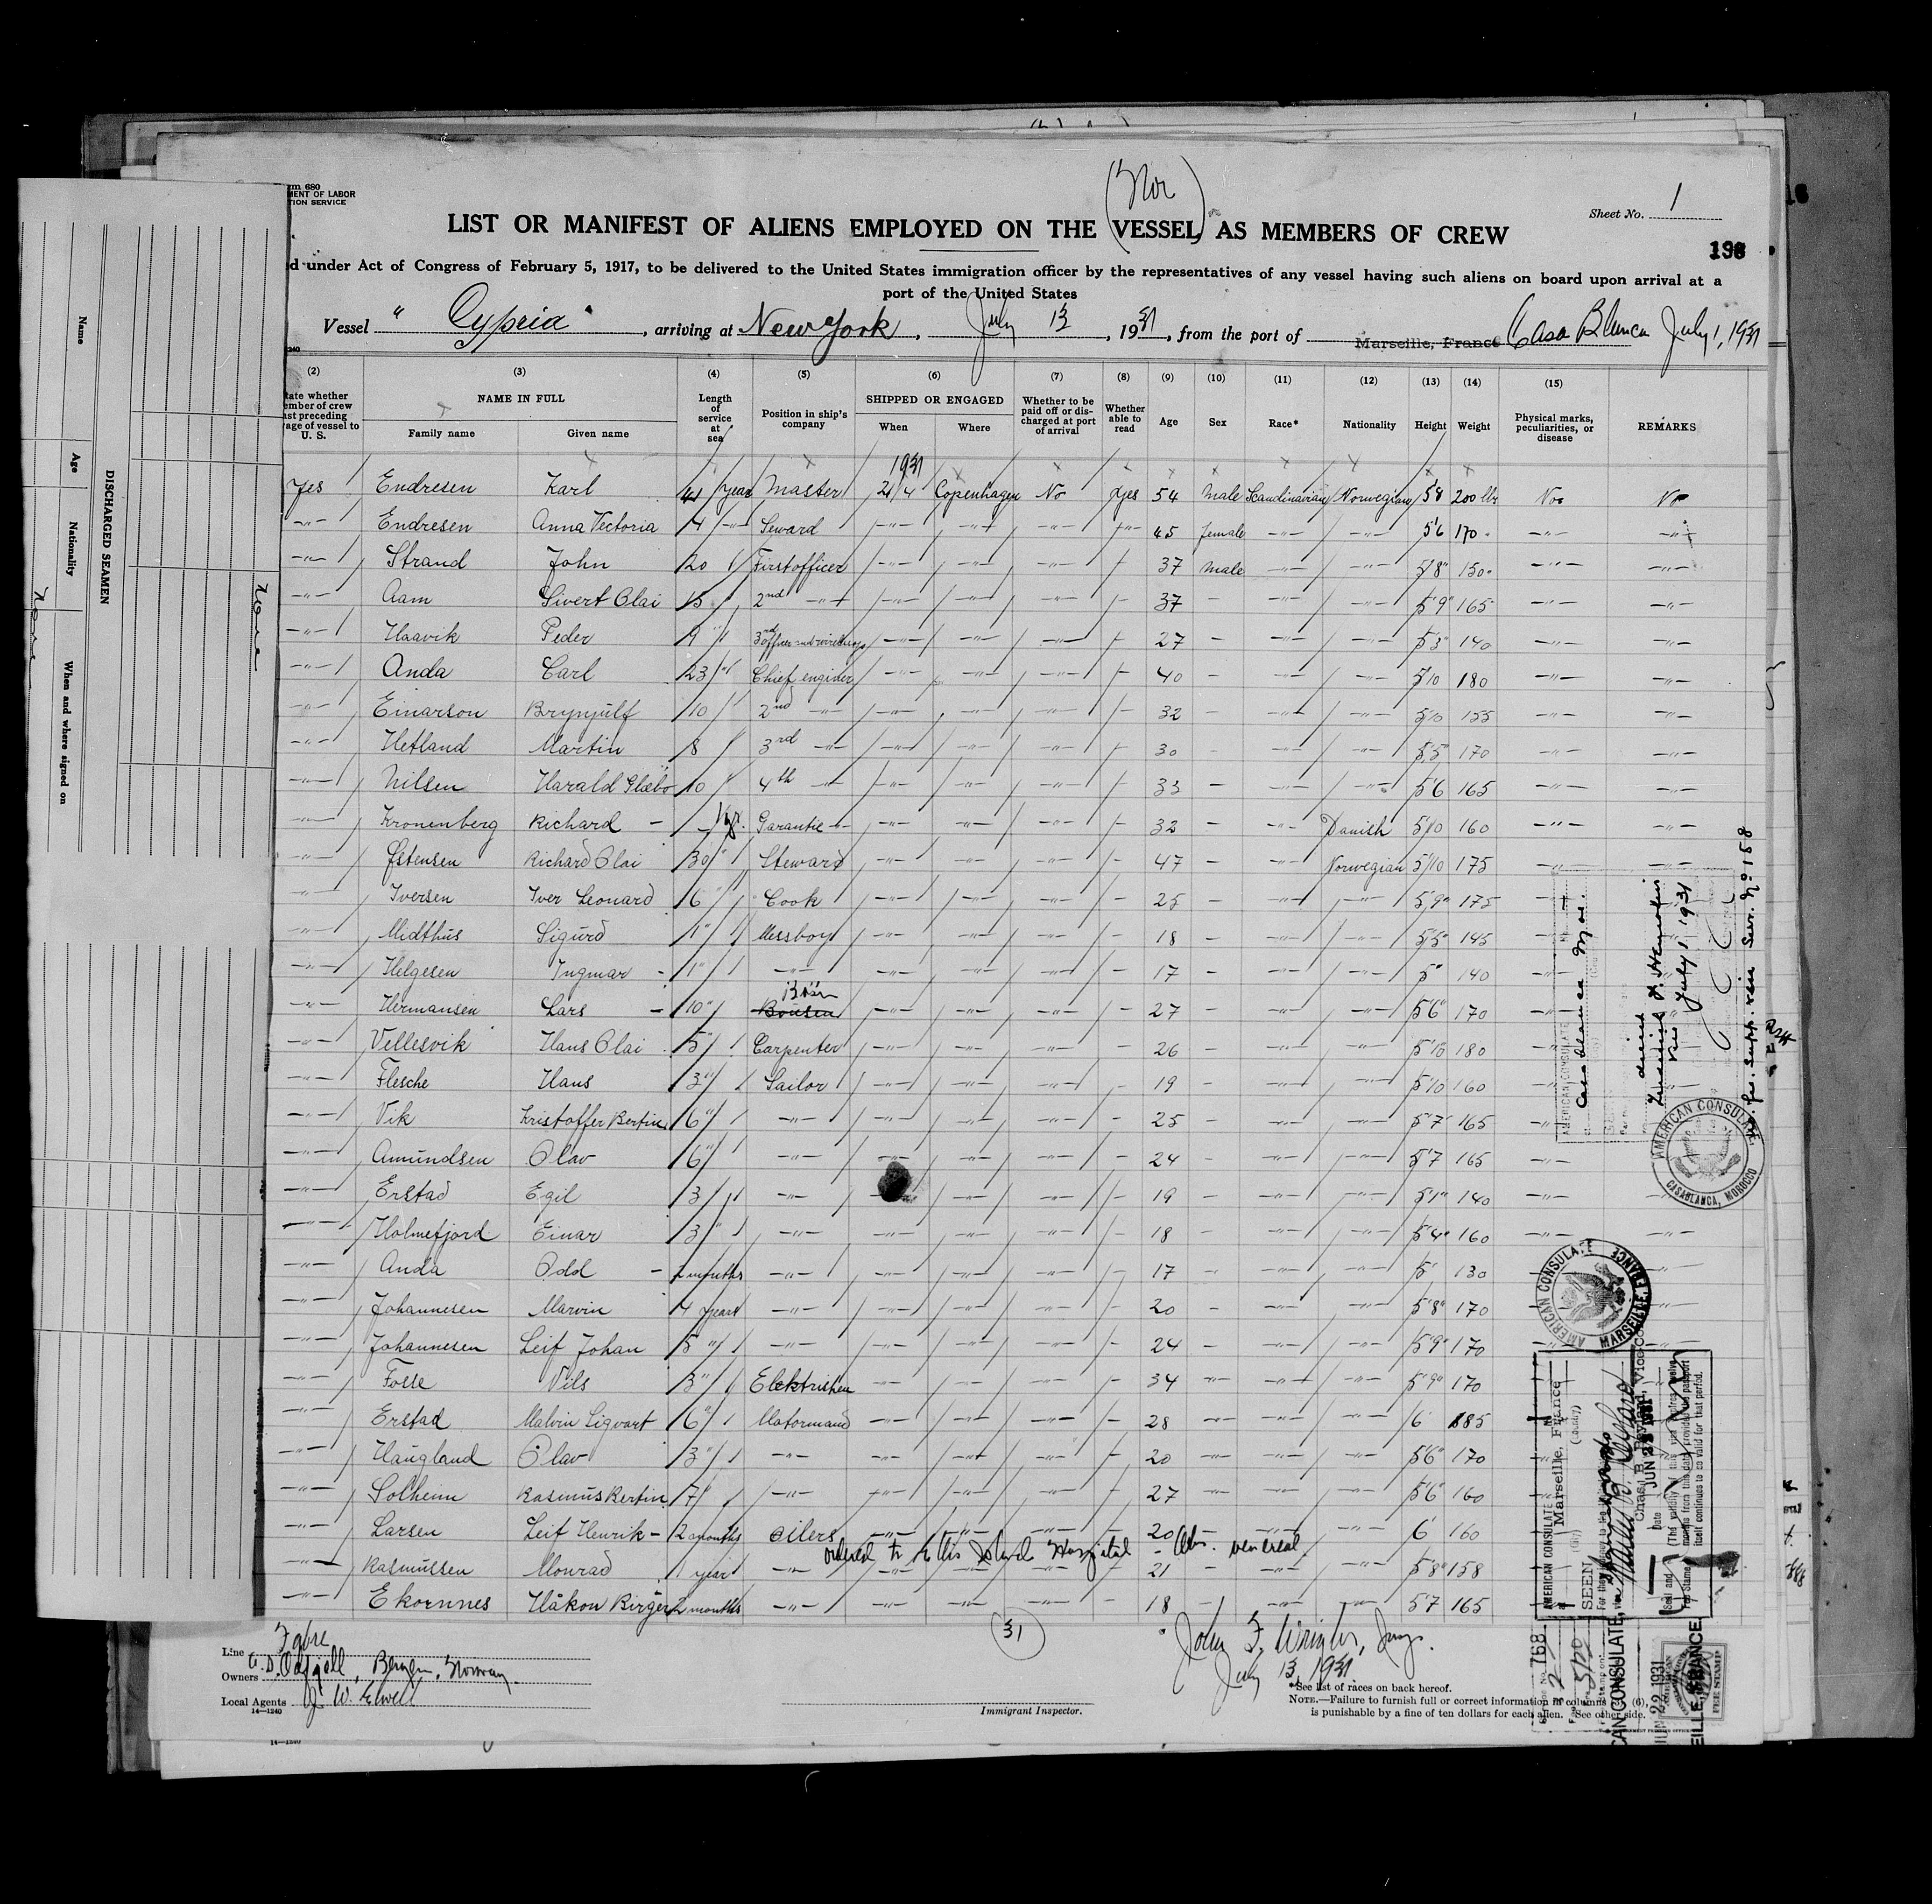 rm 680
MENT OF LABOR
TION SERVICE
(Nor)
Sheet No. 1
LIST OR MANIFEST OF ALIENS EMPLOYED ON THE VESSEL AS MEMBERS OF CREW
d under Act of Congress of February 5, 1917, to be delivered to the United States immigration officer by the representatives of any vessel having such aliens on board upon arrival at a
port of the United States
Vessel "Cypria", arriving at New York, July 13, 1931, from the port of Marseille, France Casa Blanca July 1, 1931
(2) (3) (4) (5) (6) (7) (8) (9) (10) (11) (12) (13) (14) (15)
tate whether ember of crew ast preceding age of vessel to U. S. NAME IN FULL Family name Given name Length of service at sea Position in ship's company SHIPPED OR ENGAGED When Where Whether to be paid off or discharged at port of arrival Whether able to read Age Sex Race* Nationality Height Weight Physical marks, peculiarities, or disease REMARKS
1931
Yes Endresen Karl 41 year Master 21/4 Copenhagen No Yes 54 Male Scandinavian Norwegian 5'8 200 lbs No No
-"- Endresen Anna Victoria 4 -"- Seward -"- -"- -"- -"- 45 female -"- -"- 5'6 170 -"- -"-
-"- Strand John 20 First officer -"- -"- -"- 37 Male -"- -"- 5'8" 150 -"- -"-
-"- Aam Sivert Olai 15 2nd -"- -"- -"- -"- 37 - -"- -"- 5'9" 165 -"- -"-
-"- Haavik Peder 9 " 3rd officer -"- -"- -"- 27 - -"- -"- 5'3" 140 -"- -"-
-"- Anda Carl 23 " Chief engider -"- -"- -"- 40 - -"- -"- 5'10 180 -"- -"-
-"- Einarson Brynjulf 10 2nd -"- -"- -"- -"- 32 - -"- -"- 5'10 155 -"- -"-
-"- Hetland Martin 8 3rd -"- -"- -"- -"- 30 - -"- -"- 5'5" 170 -"- -"-
-"- Nilsen Harald Glæbo 10 4th -"- -"- -"- -"- 33 - -"- -"- 5'6 165 -"- -"-
-"- Kronenberg Richard - 1 yr. Garantie -"- -"- -"- -"- 32 - -"- Danish 5'10 160 -"- -"-
-"- Østensen Richard Olai 30 " Steward -"- -"- -"- 47 - -"- Norwegian 5'10 175 -"- -"-
-"- Iversen Iver Leonard 6 " Cook -"- -"- -"- 25 - -"- -"- 5'9" 175 -"-
-"- Midthus Sigurd 1 " Messboy -"- -"- -"- 18 - -"- -"- 5'5" 145 -"-
-"- Helgesen Ingmar - 1 " -"- -"- -"- -"- 17 - -"- -"- 5" 140 -"-
-"- Hermansen Lars - 10 " Bousen Bos'n -"- -"- -"- 27 - -"- -"- 5'6" 170 -"-
-"- Vellesvik Hans Olai 5 Carpenter -"- -"- -"- 26 - -"- -"- 5'10 180 -"-
-"- Flesche Hans 3 " Sailor -"- -"- -"- 19 - -"- -"- 5'10 160 -"-
-"- Vik Kristoffer Bertin 6 " -"- -"- -"- -"- 25 - -"- -"- 5'7" 165 -"-
-"- Amundsen Olav 6 " -"- -"- -"- -"- 24 - -"- -"- 5'7 165 -"-
-"- Erstad Egil 3 -"- -"- -"- -"- 19 - -"- -"- 5'1" 140 -"-
-"- Holmefjord Einar 3 " -"- -"- -"- -"- 18 - -"- -"- 5'4" 160 -"- -"-
-"- Anda Odd - 2 months -"- -"- -"- -"- 17 - -"- -"- 5' 130 -"-
-"- Johannesen Marvin 4 years -"- -"- -"- -"- 20 - -"- -"- 5'8" 170 -"-
-"- Johannesen Leif Johan 5 " -"- -"- -"- -"- 24 - -"- -"- 5'9" 170 -"-
-"- Fosse Nils 3 " Elektriken -"- -"- -"- 34 -"- -"- -"- 5'9" 170
-"- Erstad Malvin Sigvart 6 " Motormand -"- -"- -"- 28 - -"- -"- 6' 185
-"- Haugland Olav 3 " -"- -"- -"- -"- 20 - -"- -"- 5'6" 170
-"- Solheim Rasmus Bertin 7 -"- -"- -"- -"- 27 - -"- -"- 5'6" 160
-"- Larsen Leif Henrik - 2 months oilers -"- -"- -"- 20 - -"- -"- 6' 160
ordered to Ellis Island Hospital - Obs. venereal
-"- Rasmussen Monrad 1 year -"- -"- -"- -"- 21 - -"- -"- 5'8" 158
-"- Ekornnes Håkon Birger 2 months -"- -"- -"- -"- 18 - -"- -"- 5'7 165
31
Line Fabre
Owners Bergen, Norway.
Local Agents J. W. Elwell
14—1240
Immigrant Inspector.
July 13, 1931
*See list of races on back hereof.
NOTE.—Failure to furnish full or correct information in columns (6), is punishable by a fine of ten dollars for each alien. See other side.
DISCHARGED SEAMEN
Name
Age
Nationality
When and where signed on
None
None
AMERICAN CONSULATE
Casablanca
July 1, 1931
AMERICAN CONSULATE
CASABLANCA, MOROCCO
AMERICAN CONSULATE
MARSEILLE, FRANCE
AMERICAN CONSULATE
Marseille, France
SEEN
Vice Consul
JUN 22 1931
768
FEE STAMP